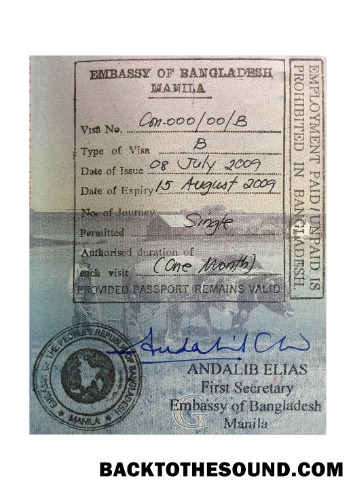 EMBASSY OF BANGLADESH
MANILA
Visa No. Con-000/00/B
Type of Visa B
Date of Issue 08 July 2009
Date of Expiry 15 August 2009
No. of Journey
Permitted Single
Authorised duration of
each visit (One Month)
PROVIDED PASSPORT REMAINS VALID
EMPLOYMENT PAID/UNPAID IS
PROHIBITED IN BANGLADESH.
EMBASSY OF THE PEOPLE'S REPUBLIC OF BANGLADESH
MANILA
ANDALIB ELIAS
First Secretary
Embassy of Bangladesh
Manila
G
BACKTOTHESOUND.COM